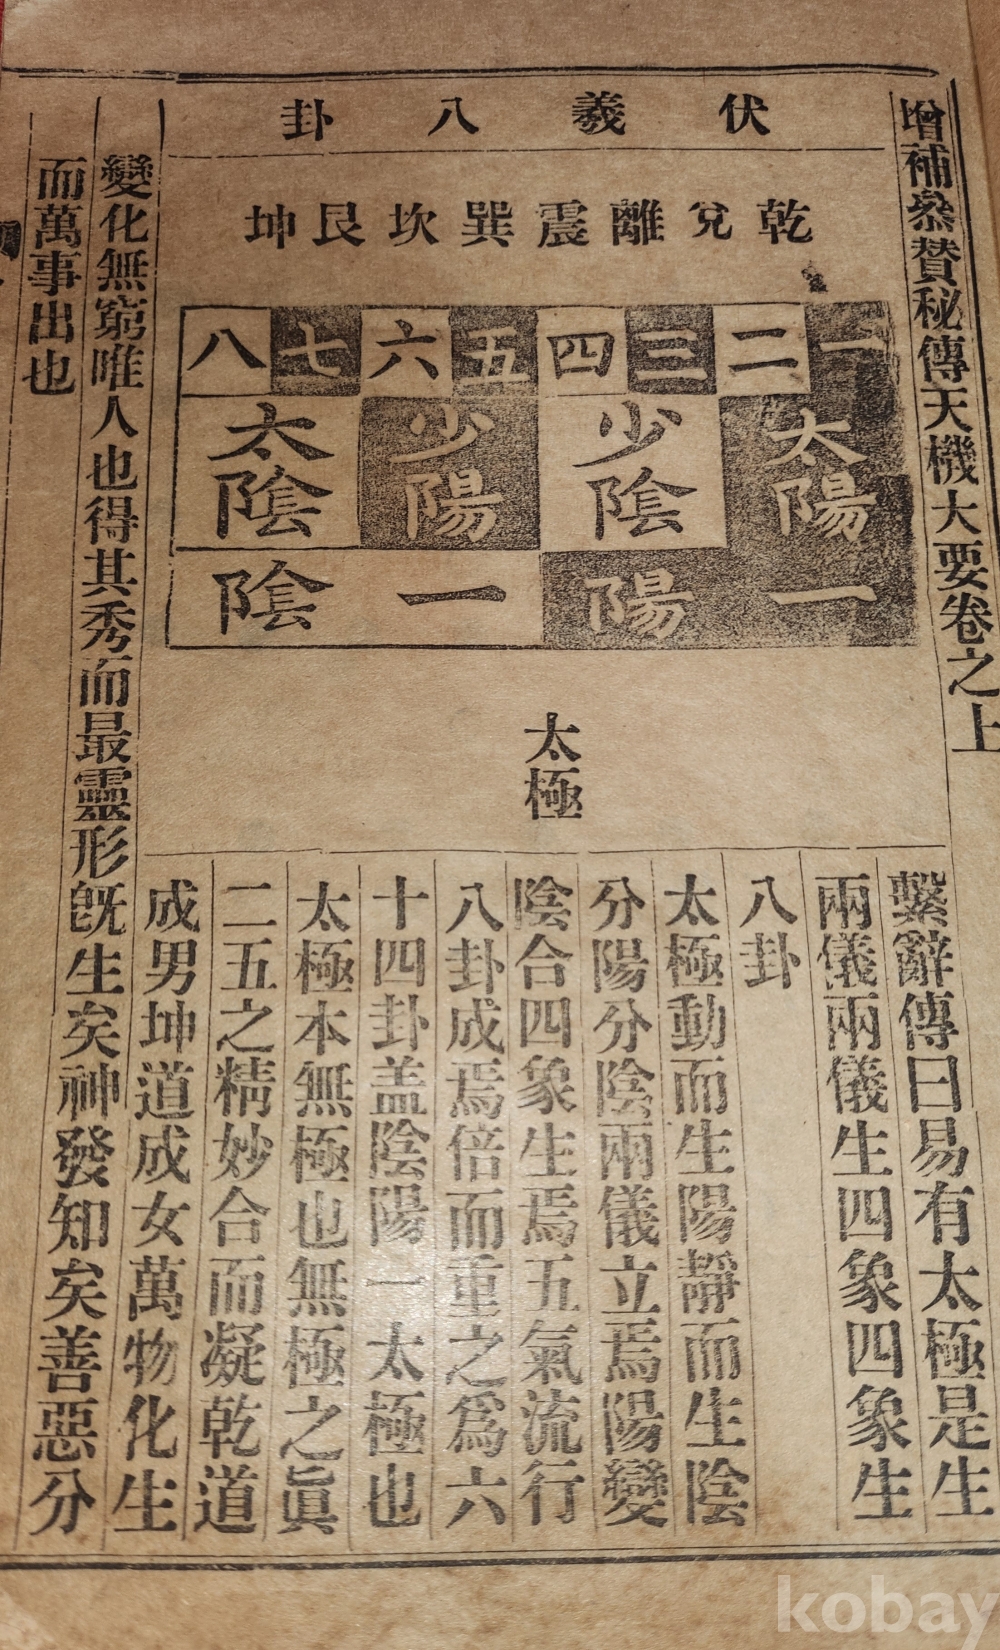 增補參贊秘傳天機大要卷之上
伏羲八卦
乾兌離震巽坎艮坤
一二三四五六七八
太陽 少陰 少陽 太陰
一陽 一陰
太極
繫辭傳曰易有太極是生
兩儀兩儀生四象四象生
八卦
太極動而生陽靜而生陰
分陽分陰兩儀立焉陽變
陰合四象生焉五氣流行
八卦成焉倍而重之爲六
十四卦盖陰陽一太極也
太極本無極也無極之眞
二五之精妙合而凝乾道
成男坤道成女萬物化生
變化無窮唯人也得其秀而最靈形旣生矣神發知矣善惡分
而萬事出也
kobay